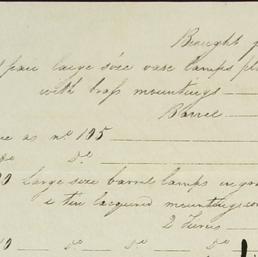 Brought
pair large size vase lamps
with brass mountings
Barrel
as no 195
do do
Large size barrel lamps
& tin lacquered mountings
2 Tins
do do do